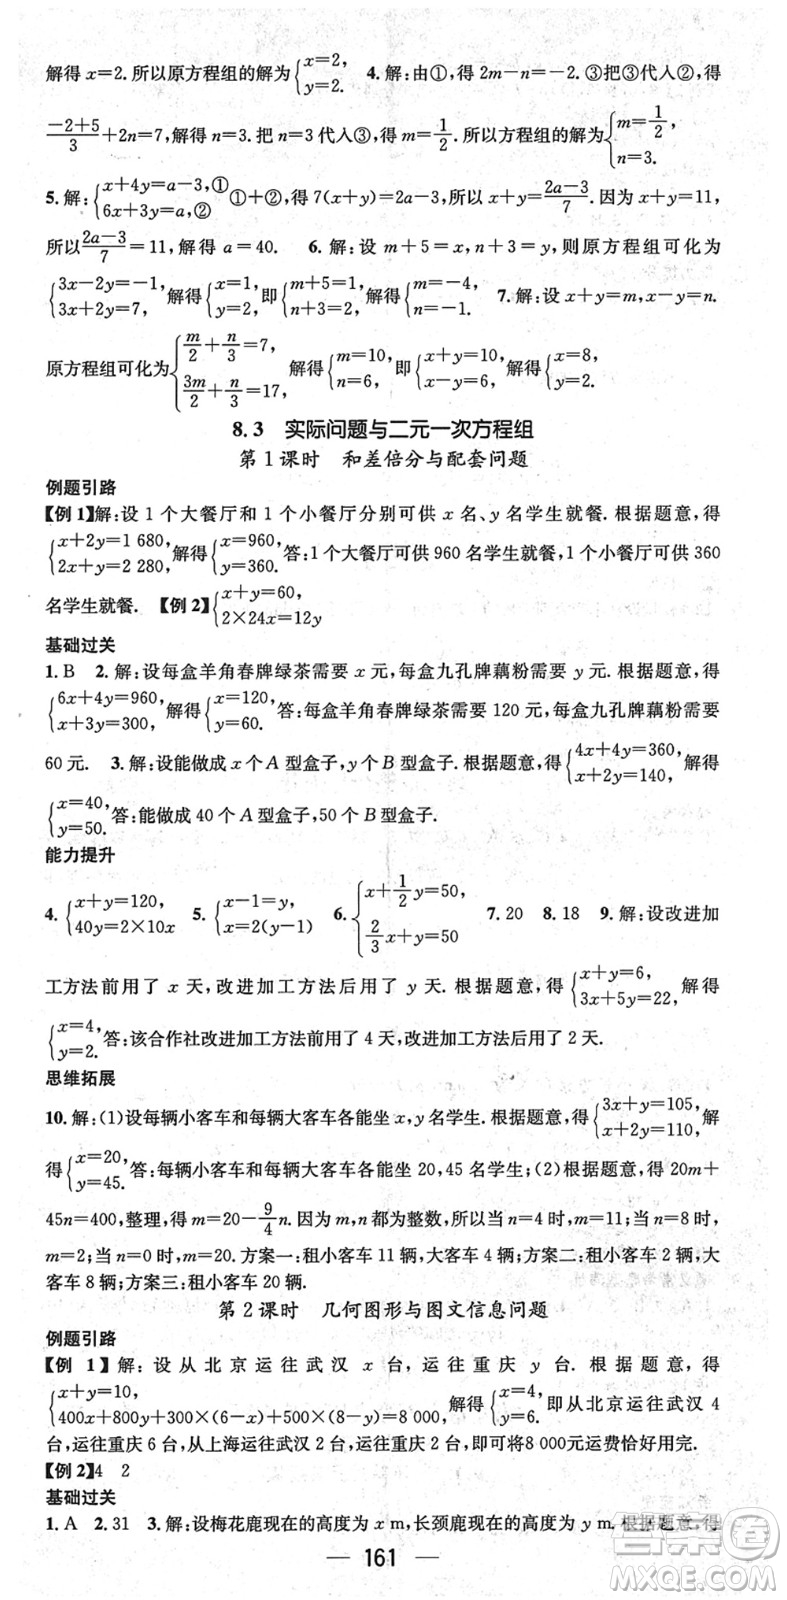 解得 x=2. 所以原方程组的解为{x=2, y=2.  4. 解:由①,得 2m-n=-2. ③把③代入②,得
(-2+5)/3+2n=7,解得 n=3. 把 n=3 代入③,得 m=1/2. 所以方程组的解为{m=1/2, n=3.
5. 解:{x+4y=a-3,① 6x+3y=a,② ①+②,得 7(x+y)=2a-3. 所以 x+y=(2a-3)/7. 因为 x+y=11,
所以(2a-3)/7=11,解得 a=40.  6. 解:设 m+5=x,n+3=y,则原方程组可化为
{3x-2y=-1, 3x+2y=7, 解得{x=1, y=2, 即{m+5=1, n+3=2, 解得{m=-4, n=-1.  7. 解:设 x+y=m,x-y=n.
原方程组可化为{m/2+n/3=7, 3m/2+n/3=17, 解得{m=10, n=6, 即{x+y=10, x-y=6, 解得{x=8, y=2.
8.3 实际问题与二元一次方程组
第1课时 和差倍分与配套问题
例题引路
【例1】解:设 1 个大餐厅和 1 个小餐厅分别可供 x 名、y 名学生就餐. 根据题意,得
{x+2y=1 680, 2x+y=2 280, 解得{x=960, y=360. 答:1 个大餐厅可供 960 名学生就餐,1 个小餐厅可供 360
名学生就餐. 【例2】{x+y=60, 2×24x=12y
基础过关
1. B  2. 解:设每盒羊角春牌绿茶需要 x 元,每盒九孔牌藕粉需要 y 元. 根据题意,得
{6x+4y=960, x+3y=300, 解得{x=120, y=60. 答:每盒羊角春牌绿茶需要 120 元,每盒九孔牌藕粉需要
60 元.  3. 解:设能做成 x 个 A 型盒子,y 个 B 型盒子. 根据题意,得{4x+4y=360, x+2y=140, 解得
{x=40, y=50. 答:能做成 40 个 A 型盒子,50 个 B 型盒子.
能力提升
4. {x+y=120, 40y=2×10x  5. {x-1=y, x=2(y-1)  6. {x+1/2y=50, 2/3x+y=50  7. 20  8. 18  9. 解:设改进加
工方法前用了 x 天,改进加工方法后用了 y 天. 根据题意,得{x+y=6, 3x+5y=22, 解得
{x=4, y=2. 答:该合作社改进加工方法前用了 4 天,改进加工方法后用了 2 天.
思维拓展
10. 解:(1)设每辆小客车和每辆大客车各能坐 x,y 名学生. 根据题意,得{3x+y=105, x+2y=110, 解
得{x=20, y=45. 答:每辆小客车和每辆大客车各能坐 20,45 名学生;(2)根据题意,得 20m+
45n=400,整理,得 m=20-9/4n. 因为 m,n 都为整数,所以当 n=4 时,m=11;当 n=8 时,
m=2;当 n=0 时,m=20. 方案一:租小客车 11 辆,大客车 4 辆;方案二:租小客车 2 辆,大
客车 8 辆;方案三:租小客车 20 辆.
第2课时 几何图形与图文信息问题
例题引路
【例1】解:设从北京运往武汉 x 台,运往重庆 y 台. 根据题意,得
{x+y=10, 400x+800y+300×(6-x)+500×(8-y)=8 000, 解得{x=4, y=6. 即从北京运往武汉 4
台,运往重庆 6 台,从上海运往武汉 2 台,运往重庆 2 台,即可将8 000元运费恰好用完.
【例2】4  2
基础过关
1. A  2. 31  3. 解:设梅花鹿现在的高度为 x m,长颈鹿现在的高度为 y m. 根据题意,得
161
答案圈
MXQE.COM